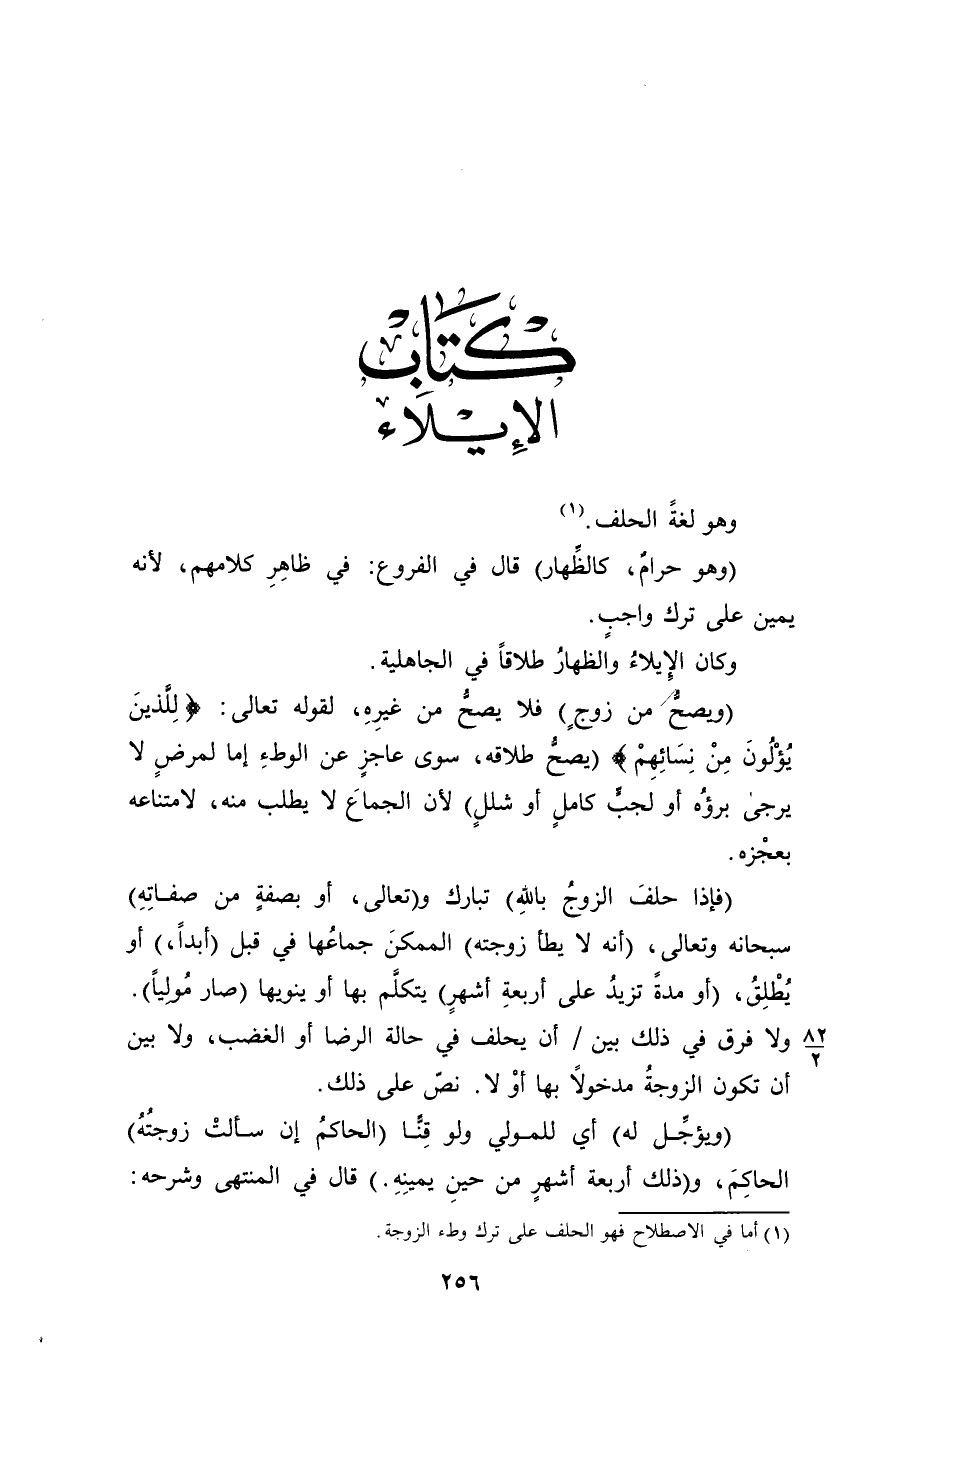 كتاب
الإيلاء
وهو لغةً الحلف.(١)
(وهو حرامٌ، كالظِّهار) قال في الفروع: في ظاهِرِ كلامهم، لأنه
يمين على ترك واجبٍ.
وكان الإيلاءُ والظهارُ طلاقاً في الجاهلية.
(ويصحُّ من زوجٍ) فلا يصحُّ من غيرِهِ، لقوله تعالى: ﴿لِلَّذينَ
يُؤْلُونَ مِنْ نِسَائِهِمْ﴾ (يصحُّ طلاقه، سوى عاجزٍ عن الوطءِ إما لمرضٍ لا
يرجىٰ برؤُه أو لجبٍّ كاملٍ أو شللٍ) لأن الجماعَ لا يطلب منه، لامتناعه
بعجْزه.
(فإذا حلفَ الزوجُ باللهِ) تبارك و(تعالى، أو بصفةٍ من صفاتِهِ)
سبحانه وتعالى، (أنه لا يطأ زوجته) الممكنَ جماعُها في قبل (أبداً،) أو
يُطْلِقُ، (أو مدةً تزيدُ على أربعةِ أشهرٍ) يتكلَّم بها أو ينويها (صار مُولِياً).
ولا فرق في ذلك بين / أن يحلف في حالة الرضا أو الغضب، ولا بين ٨٢/٢
أن تكون الزوجةُ مدخولاً بها أوْ لا. نصّ على ذلك.
(ويؤجَّل له) أي للمولي ولو قِنًّا (الحاكمُ إن سألتْ زوجتُهُ)
الحاكِمَ، و(ذلك أربعة أشهرٍ من حينِ يمينِهِ.) قال في المنتهى وشرحه:
(١) أما في الاصطلاح فهو الحلف على ترك وطء الزوجة.
٢٥٦